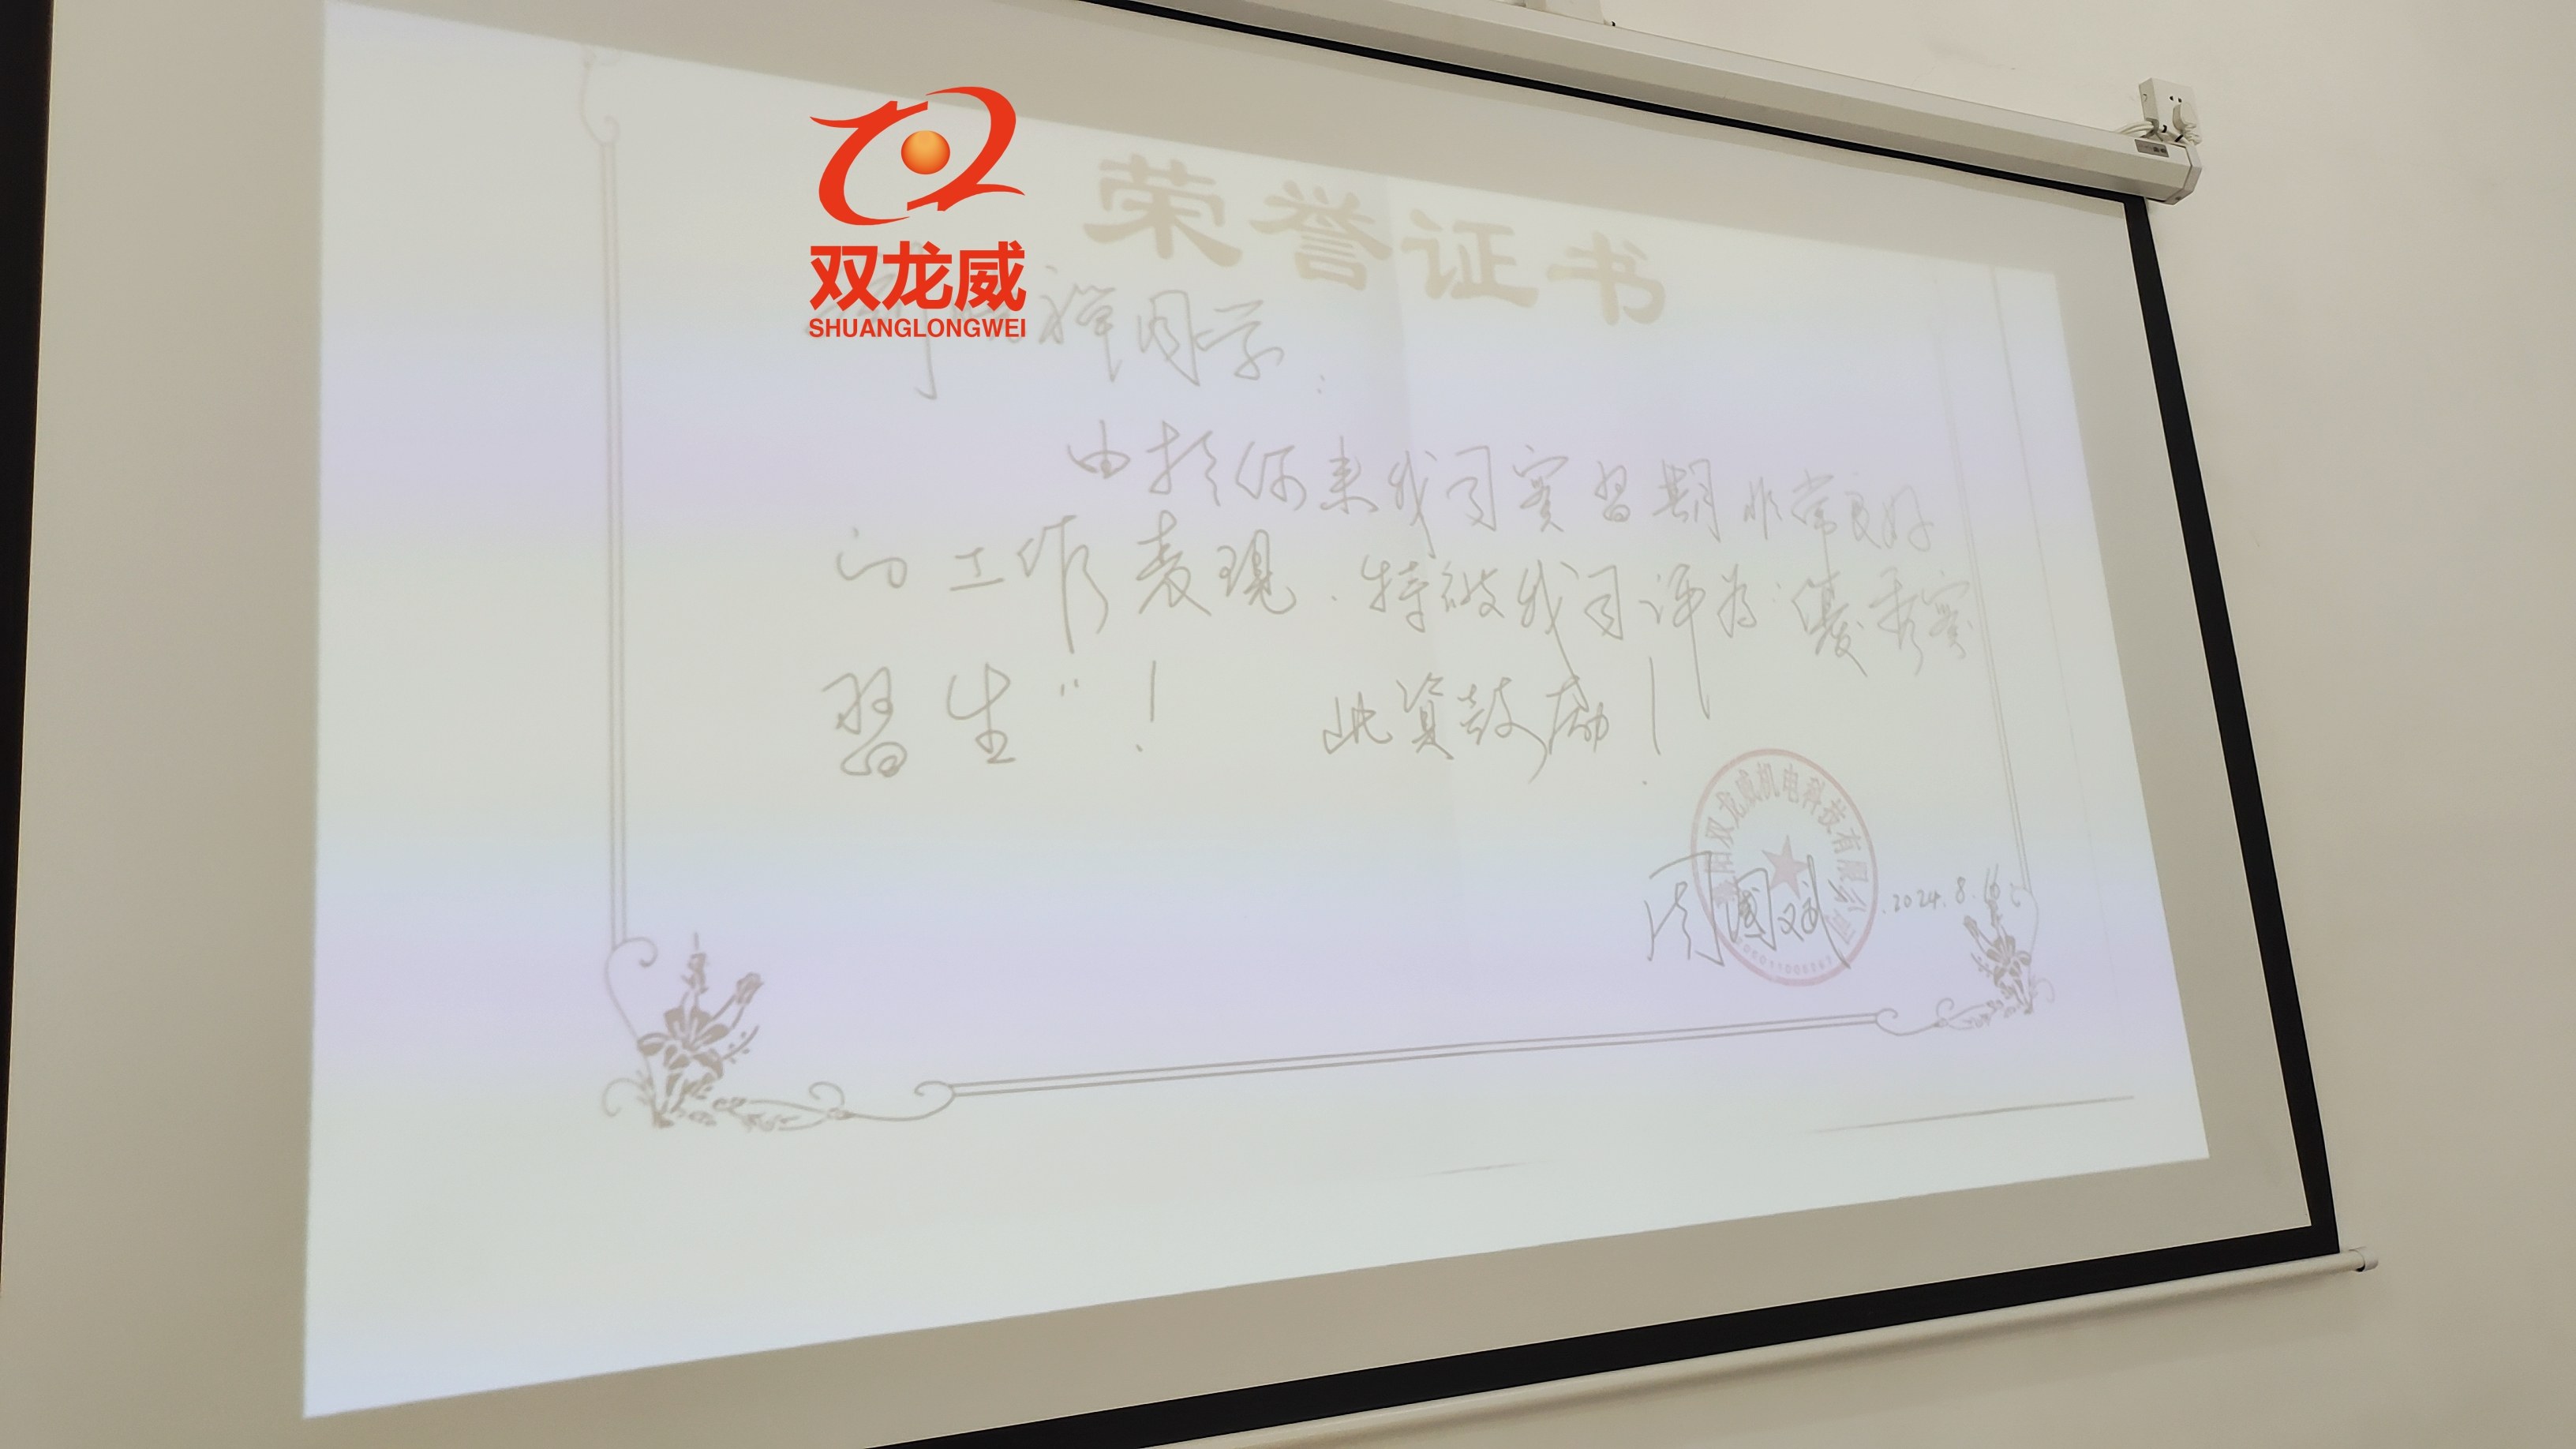 荣誉证书
双龙威
SHUANGLONGWEI
祥同学：
由於你来我司实習期非常良好
的工作表现．特被我司评为：優秀实
習生"！ 此資鼓励！
双龙威机电科技有限公司
周國斌 .2024.8.16